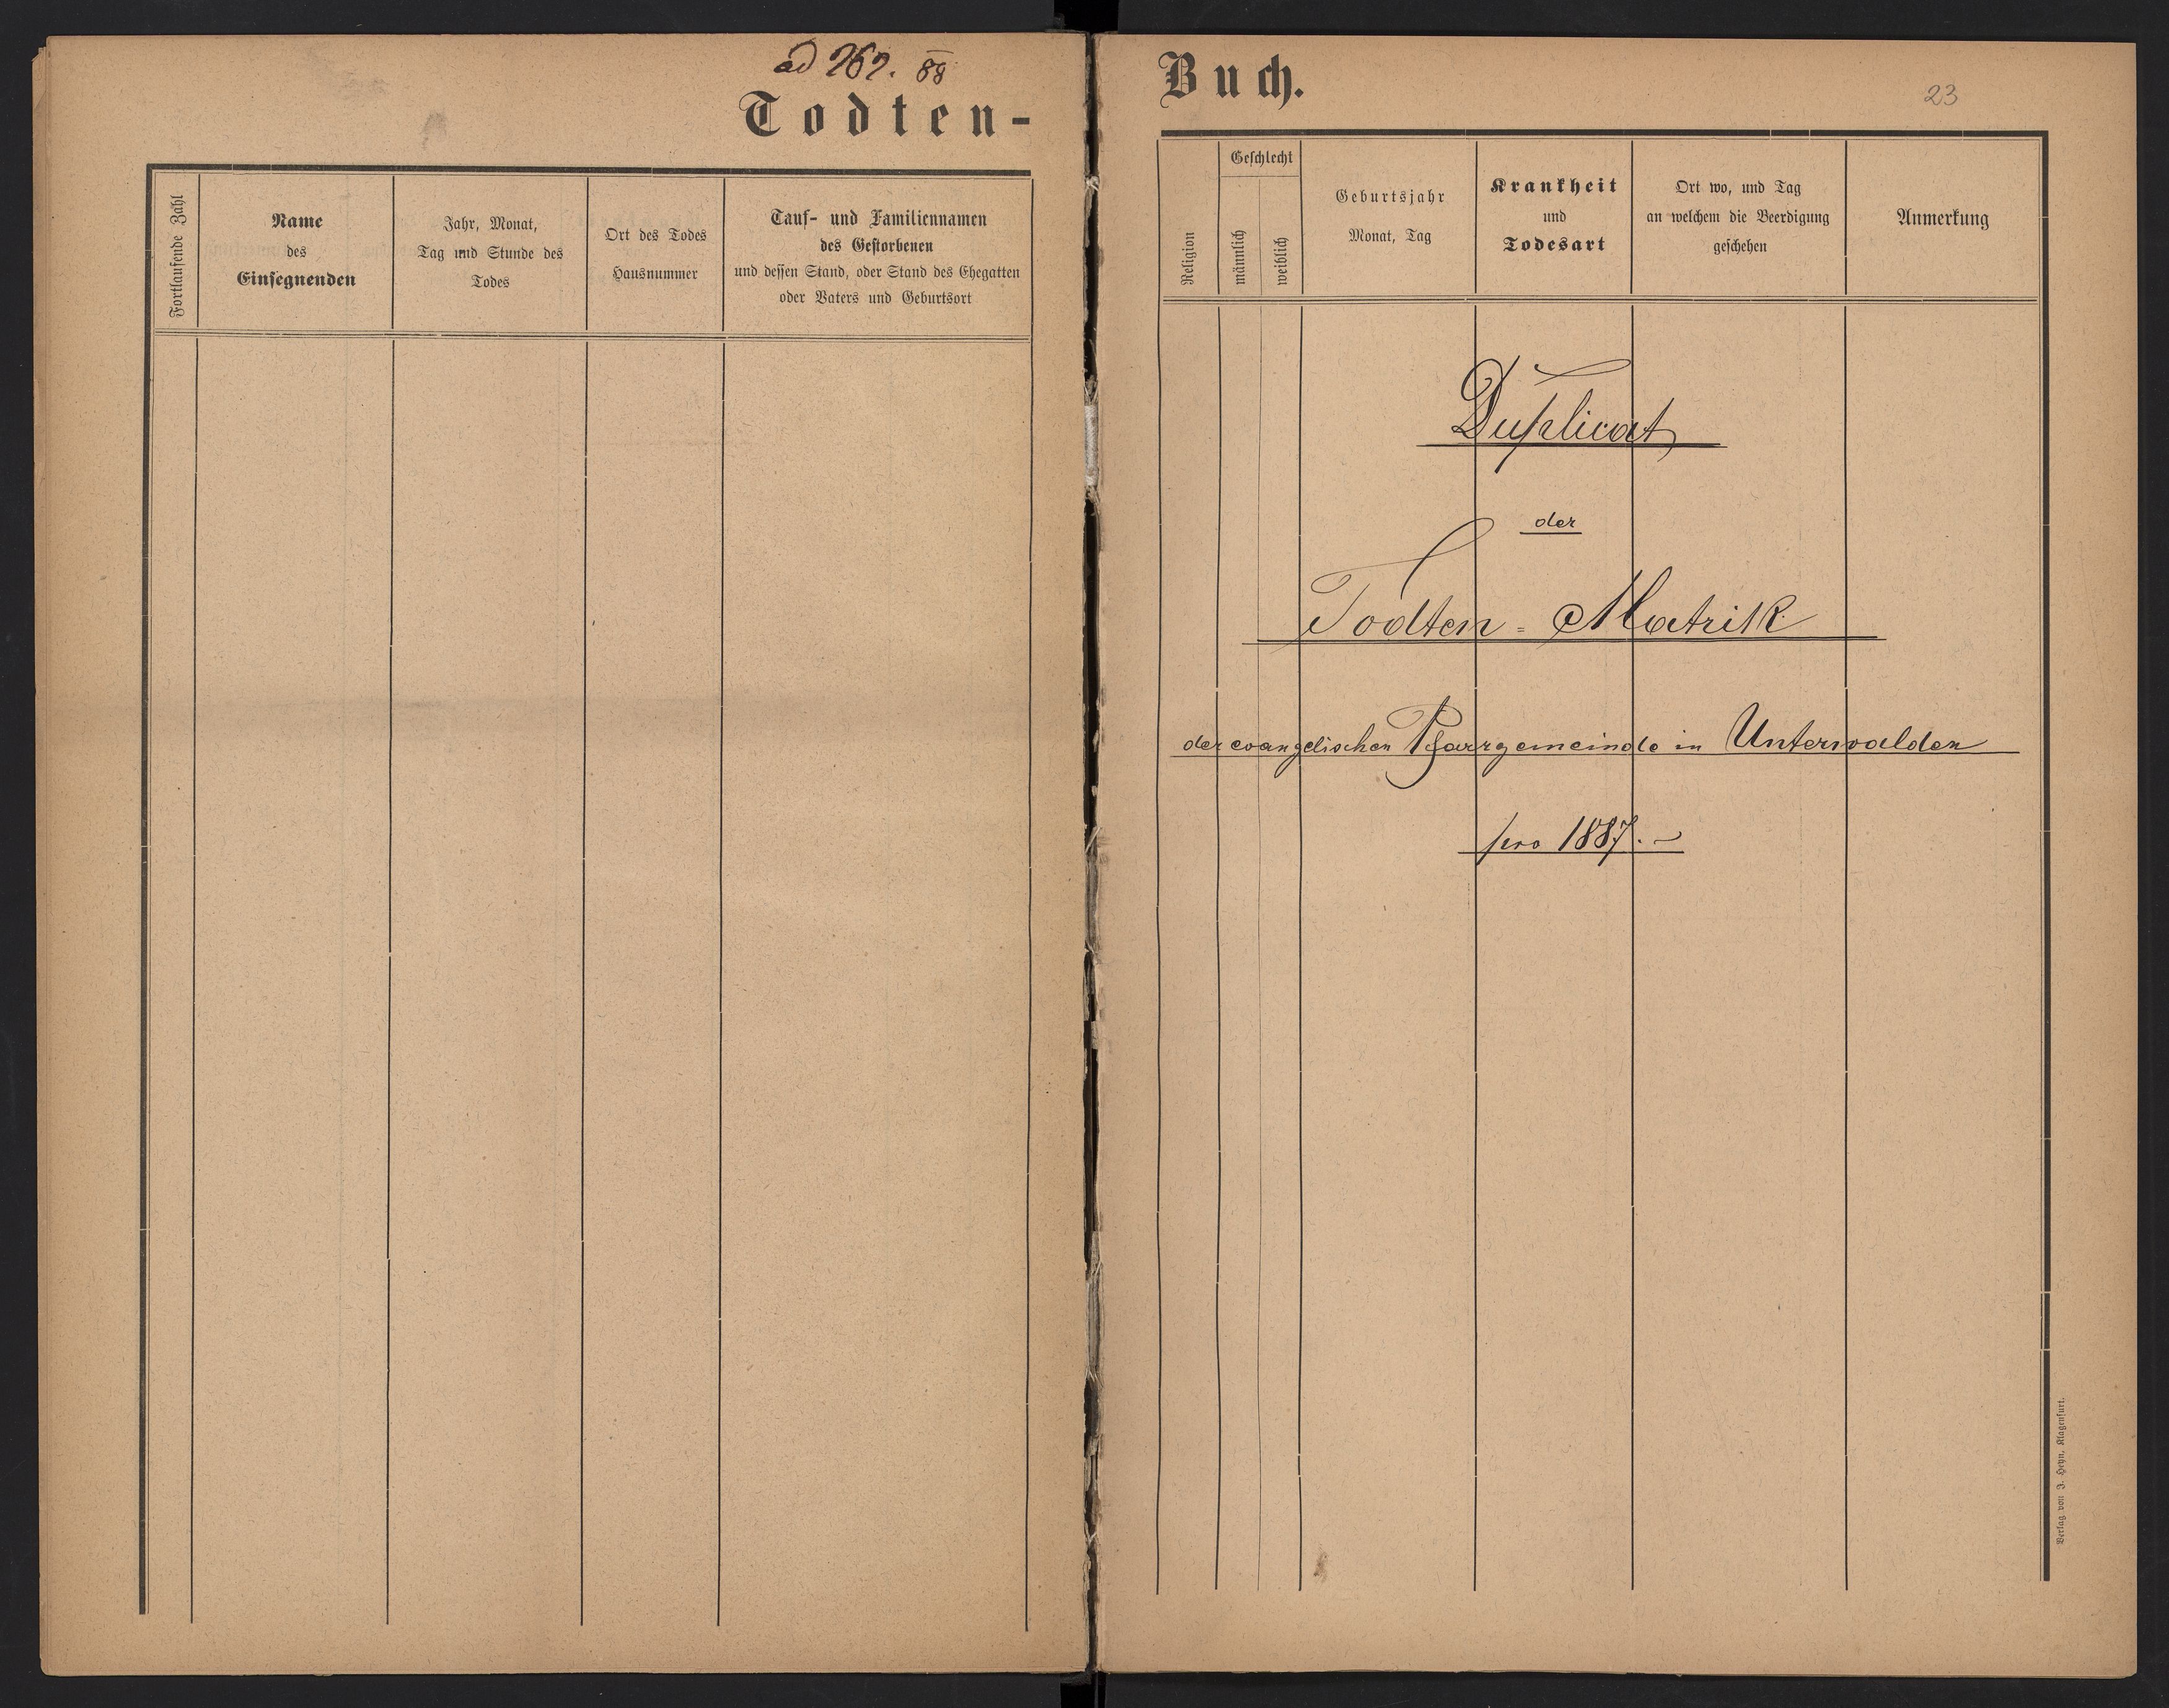 ad 262. 88
Todten-
Fortlaufende Zahl
Name
des
Einsegnenden
Jahr, Monat,
Tag und Stunde des
Todes
Ort des Todes
Hausnummer
Tauf- und Familiennamen
des Gestorbenen
und dessen Stand, oder Stand des Ehegatten
oder Vaters und Geburtsort
Buch.
23
Religion
Geschlecht
männlich
weiblich
Geburtsjahr
Monat, Tag
Krankheit
und
Todesart
Ort wo, und Tag
an welchem die Beerdigung
geschehen
Anmerkung
Duplicat
der
Todten-Matrik
der evangelischen Pfarrgemeinde in Unterwalden
pro 1887. -
Verlag von J. Heyn, Klagenfurt.